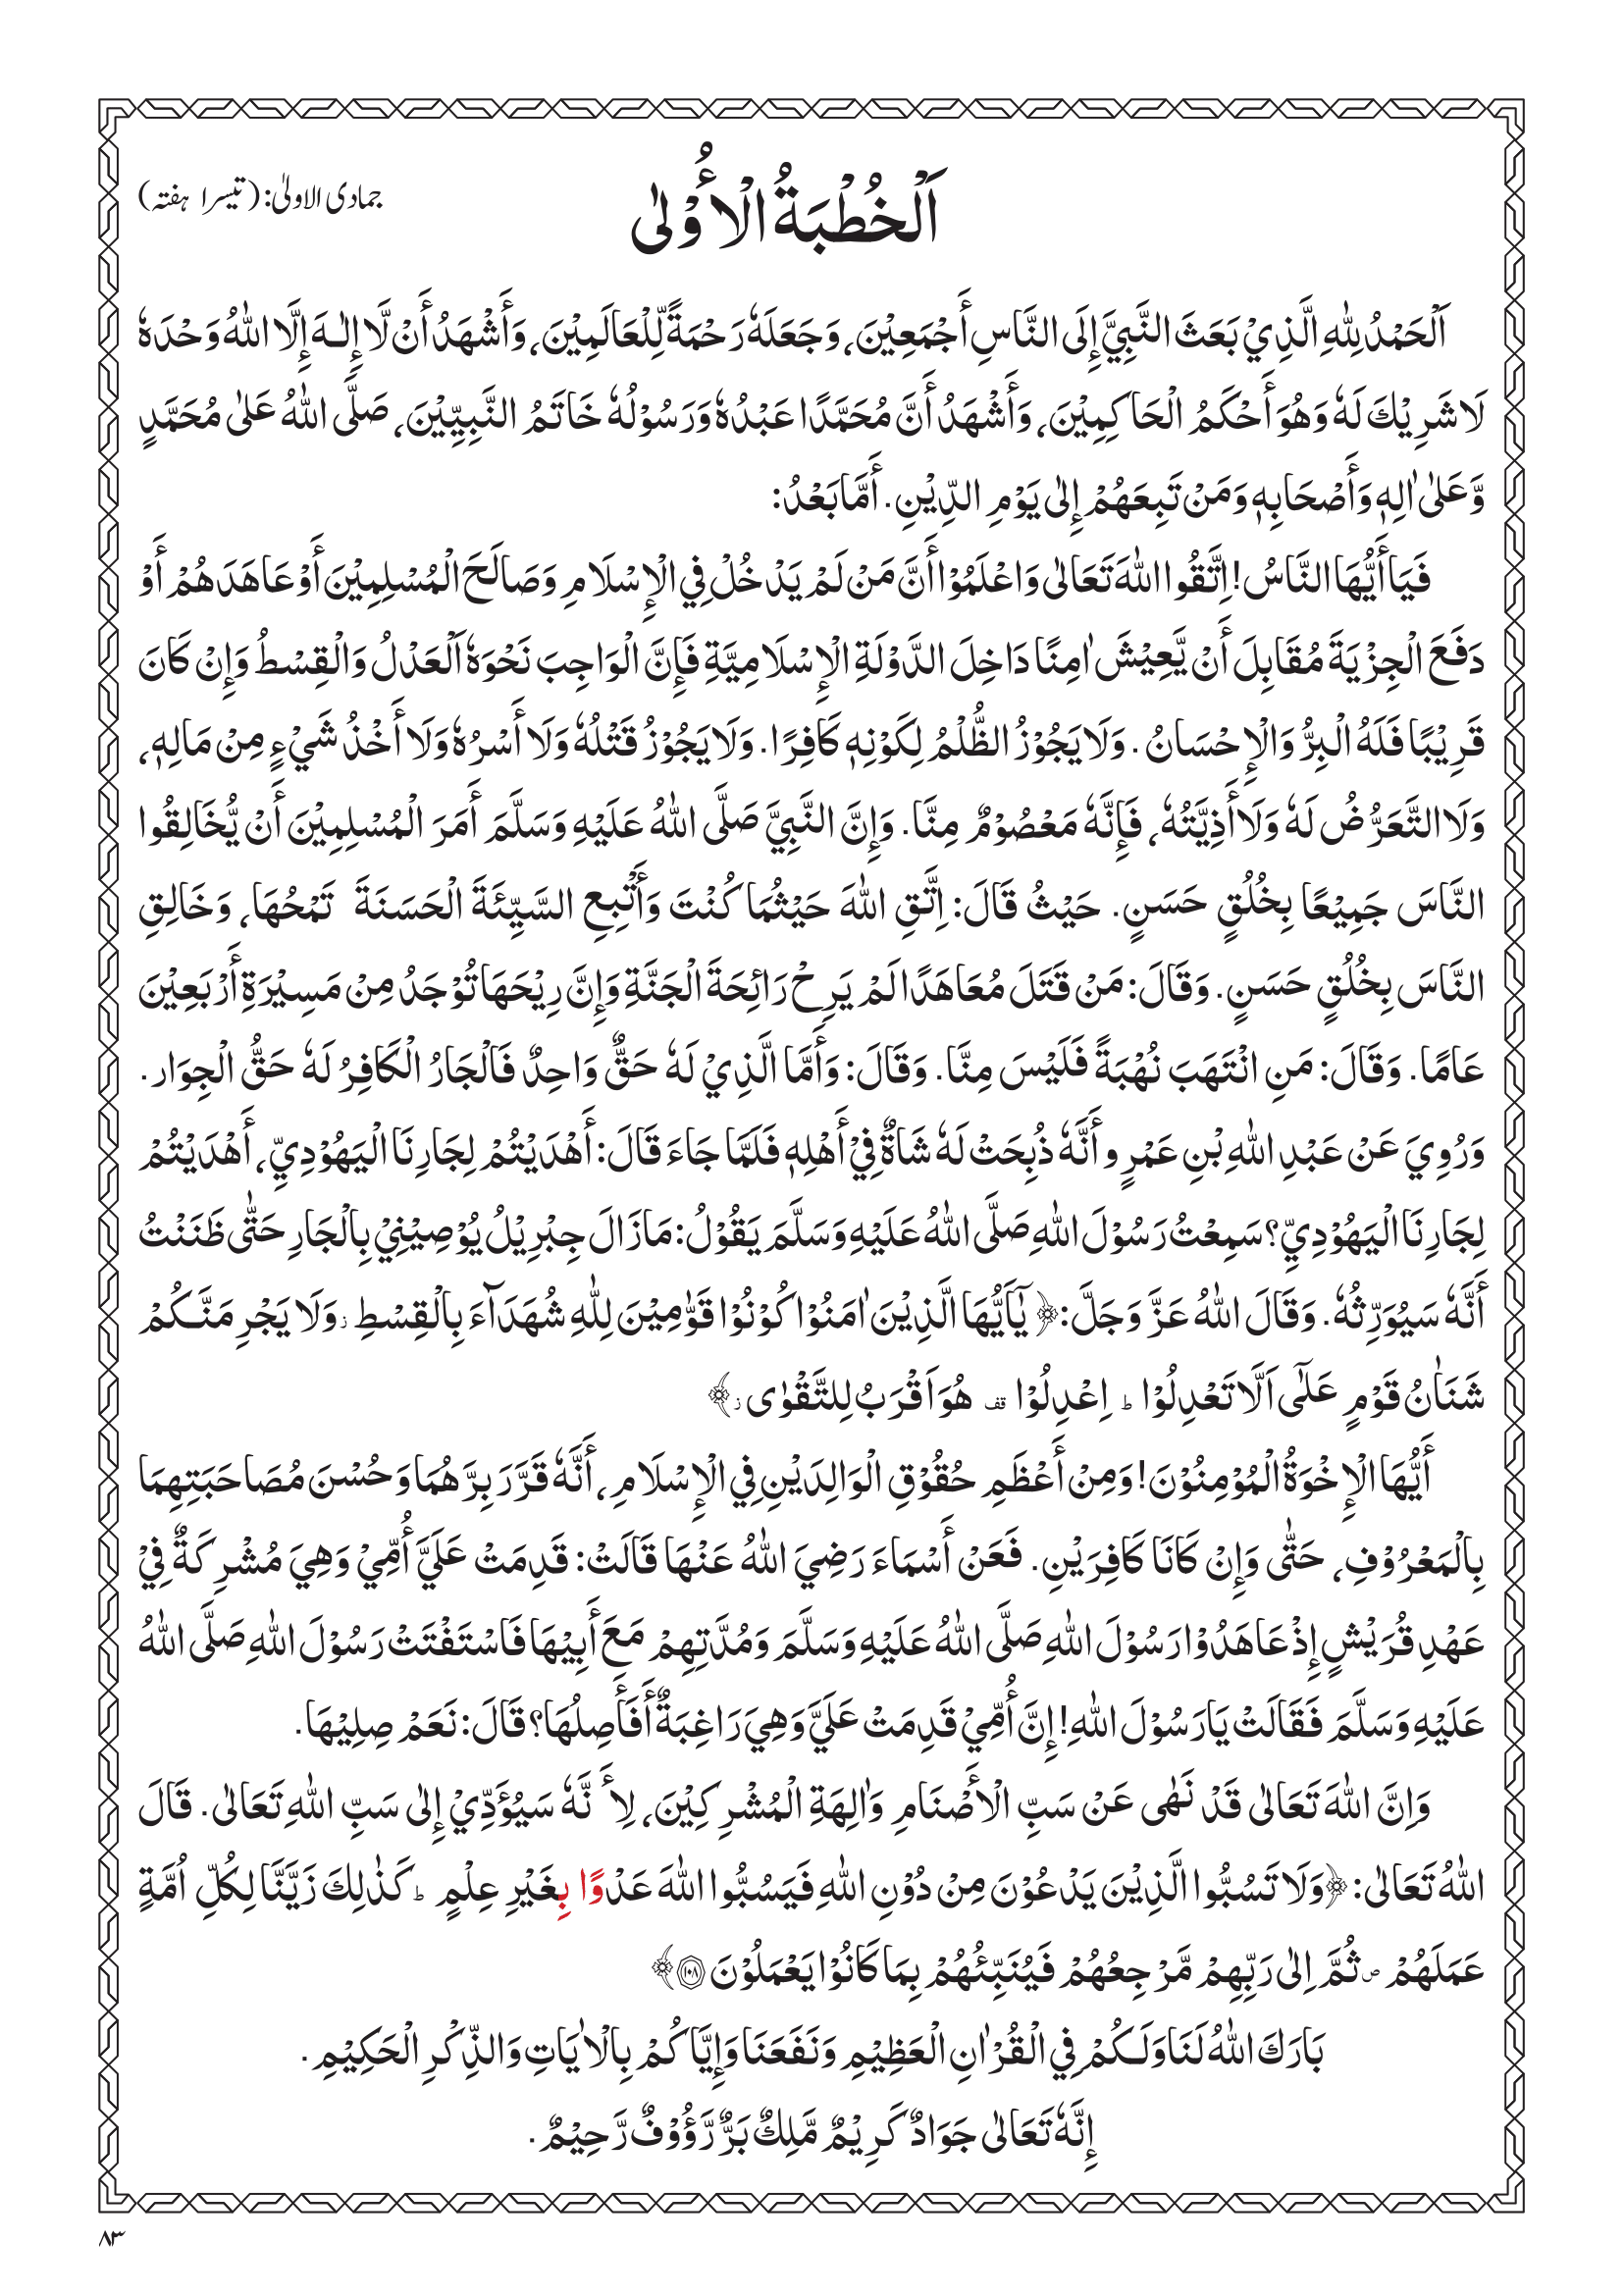 جمادی الاولیٰ: (تیسرا ہفتہ)
اَلْخُطْبَةُ الْأُوْلٰى
اَلْحَمْدُ لِلّٰهِ الَّذِيْ بَعَثَ النَّبِيَّ إِلَى النَّاسِ أَجْمَعِيْنَ، وَجَعَلَهٗ رَحْمَةً لِّلْعَالَمِيْنَ، وَأَشْهَدُ أَنْ لَّا إِلٰـهَ إِلَّا اللّٰهُ وَحْدَهٗ
لَا شَرِيْكَ لَهٗ وَهُوَ أَحْكَمُ الْحَاكِمِيْنَ، وَأَشْهَدُ أَنَّ مُحَمَّدًا عَبْدُهٗ وَرَسُوْلُهٗ خَاتَمُ النَّبِيِّيْنَ، صَلَّى اللّٰهُ عَلٰى مُحَمَّدٍ
وَّعَلٰى اٰلِهٖ وَأَصْحَابِهٖ وَمَنْ تَبِعَهُمْ إِلٰى يَوْمِ الدِّيْنِ. أَمَّا بَعْدُ:
فَيَا أَيُّهَا النَّاسُ! اِتَّقُوا اللّٰهَ تَعَالٰى وَاعْلَمُوْا أَنَّ مَنْ لَمْ يَدْخُلْ فِي الْإِسْلَامِ وَصَالَحَ الْمُسْلِمِيْنَ أَوْ عَاهَدَهُمْ أَوْ
دَفَعَ الْجِزْيَةَ مُقَابِلَ أَنْ يَّعِيْشَ اٰمِنًا دَاخِلَ الدَّوْلَةِ الْإِسْلَامِيَّةِ فَإِنَّ الْوَاجِبَ نَحْوَهٗ اَلْعَدْلُ وَالْقِسْطُ وَإِنْ كَانَ
قَرِيْبًا فَلَهُ الْبِرُّ وَالْإِحْسَانُ. وَلَا يَجُوْزُ الظُّلْمُ لِكَوْنِهٖ كَافِرًا. وَلَا يَجُوْزُ قَتْلُهٗ وَلَا أَسْرُهٗ وَلَا أَخْذُ شَيْءٍ مِنْ مَالِهٖ،
وَلَا التَّعَرُّضُ لَهٗ وَلَا أَذِيَّتُهٗ، فَإِنَّهٗ مَعْصُوْمٌ مِنَّا. وَإِنَّ النَّبِيَّ صَلَّى اللّٰهُ عَلَيْهِ وَسَلَّمَ أَمَرَ الْمُسْلِمِيْنَ أَنْ يُّخَالِقُوا
النَّاسَ جَمِيْعًا بِخُلُقٍ حَسَنٍ. حَيْثُ قَالَ: اِتَّقِ اللّٰهَ حَيْثُمَا كُنْتَ وَأَتْبِعِ السَّيِّئَةَ الْحَسَنَةَ تَمْحُهَا، وَخَالِقِ
النَّاسَ بِخُلُقٍ حَسَنٍ. وَقَالَ: مَنْ قَتَلَ مُعَاهَدًا لَمْ يَرِحْ رَائِحَةَ الْجَنَّةِ وَإِنَّ رِيْحَهَا تُوْجَدُ مِنْ مَسِيْرَةِ أَرْبَعِيْنَ
عَامًا. وَقَالَ: مَنِ انْتَهَبَ نُهْبَةً فَلَيْسَ مِنَّا. وَقَالَ: وَأَمَّا الَّذِيْ لَهٗ حَقٌّ وَاحِدٌ فَالْجَارُ الْكَافِرُ لَهٗ حَقُّ الْجِوَارِ.
وَرُوِيَ عَنْ عَبْدِ اللّٰهِ بْنِ عَمْرٍو أَنَّهٗ ذُبِحَتْ لَهٗ شَاةٌ فِيْ أَهْلِهٖ فَلَمَّا جَاءَ قَالَ: أَهْدَيْتُمْ لِجَارِنَا الْيَهُوْدِيِّ، أَهْدَيْتُمْ
لِجَارِنَا الْيَهُوْدِيِّ؟ سَمِعْتُ رَسُوْلَ اللّٰهِ صَلَّى اللّٰهُ عَلَيْهِ وَسَلَّمَ يَقُوْلُ: مَا زَالَ جِبْرِيْلُ يُوْصِيْنِيْ بِالْجَارِ حَتّٰى ظَنَنْتُ
أَنَّهٗ سَيُوَرِّثُهٗ. وَقَالَ اللّٰهُ عَزَّ وَجَلَّ: ﴿يٰٓاَيُّهَا الَّذِيْنَ اٰمَنُوْا كُوْنُوْا قَوّٰمِيْنَ لِلّٰهِ شُهَدَآءَ بِالْقِسْطِ ز وَلَا يَجْرِمَنَّـكُمْ
شَنَاٰنُ قَوْمٍ عَلٰٓى اَلَّا تَعْدِلُوْا ط اِعْدِلُوْا قف هُوَ اَقْرَبُ لِلتَّقْوٰى ز﴾
أَيُّهَا الْإِخْوَةُ الْمُوْمِنُوْنَ! وَمِنْ أَعْظَمِ حُقُوْقِ الْوَالِدَيْنِ فِي الْإِسْلَامِ، أَنَّهٗ قَرَّرَ بِرَّهُمَا وَحُسْنَ مُصَاحَبَتِهِمَا
بِالْمَعْرُوْفِ، حَتّٰى وَإِنْ كَانَا كَافِرَيْنِ. فَعَنْ أَسْمَاءَ رَضِيَ اللّٰهُ عَنْهَا قَالَتْ: قَدِمَتْ عَلَيَّ أُمِّيْ وَهِيَ مُشْرِكَةٌ فِيْ
عَهْدِ قُرَيْشٍ إِذْ عَاهَدُوْا رَسُوْلَ اللّٰهِ صَلَّى اللّٰهُ عَلَيْهِ وَسَلَّمَ وَمُدَّتِهِمْ مَعَ أَبِيْهَا فَاسْتَفْتَتْ رَسُوْلَ اللّٰهِ صَلَّى اللّٰهُ
عَلَيْهِ وَسَلَّمَ فَقَالَتْ يَا رَسُوْلَ اللّٰهِ! إِنَّ أُمِّيْ قَدِمَتْ عَلَيَّ وَهِيَ رَاغِبَةٌ أَفَأَصِلُهَا؟ قَالَ: نَعَمْ صِلِيْهَا.
وَإِنَّ اللّٰهَ تَعَالٰى قَدْ نَهٰى عَنْ سَبِّ الْأَصْنَامِ وَاٰلِهَةِ الْمُشْرِكِيْنَ، لِأَنَّهٗ سَيُؤَدِّيْ إِلٰى سَبِّ اللّٰهِ تَعَالٰى. قَالَ
اللّٰهُ تَعَالٰى: ﴿وَلَا تَسُبُّوا الَّذِيْنَ يَدْعُوْنَ مِنْ دُوْنِ اللّٰهِ فَيَسُبُّوا اللّٰهَ عَدْوًا بِغَيْرِ عِلْمٍ ط كَذٰلِكَ زَيَّنَّا لِكُلِّ اُمَّةٍ
عَمَلَهُمْ ص ثُمَّ اِلٰى رَبِّهِمْ مَّرْجِعُهُمْ فَيُنَبِّئُهُمْ بِمَا كَانُوْا يَعْمَلُوْنَ ۱۰۸﴾
بَارَكَ اللّٰهُ لَنَا وَلَـكُمْ فِي الْقُرْاٰنِ الْعَظِيْمِ وَنَفَعَنَا وَإِيَّاكُمْ بِالْاٰيَاتِ وَالذِّكْرِ الْحَكِيْمِ.
إِنَّهٗ تَعَالٰى جَوَادٌ كَرِيْمٌ مَّلِكٌ بَرٌّ رَّؤُوْفٌ رَّحِيْمٌ.
۸۳